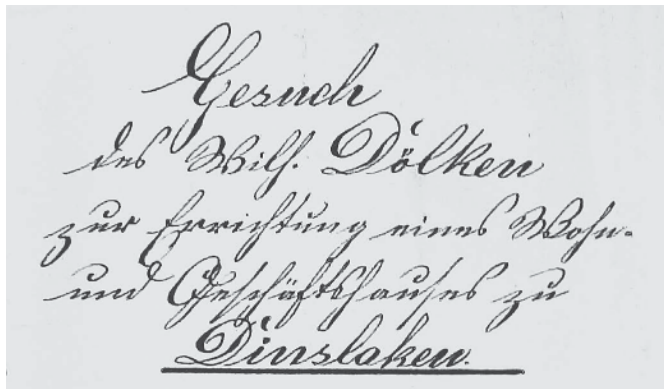 Gesuch
des Wilh. Dölken
zur Errichtung eines Wohn-
und Geschäftshauses zu
Dinslaken.